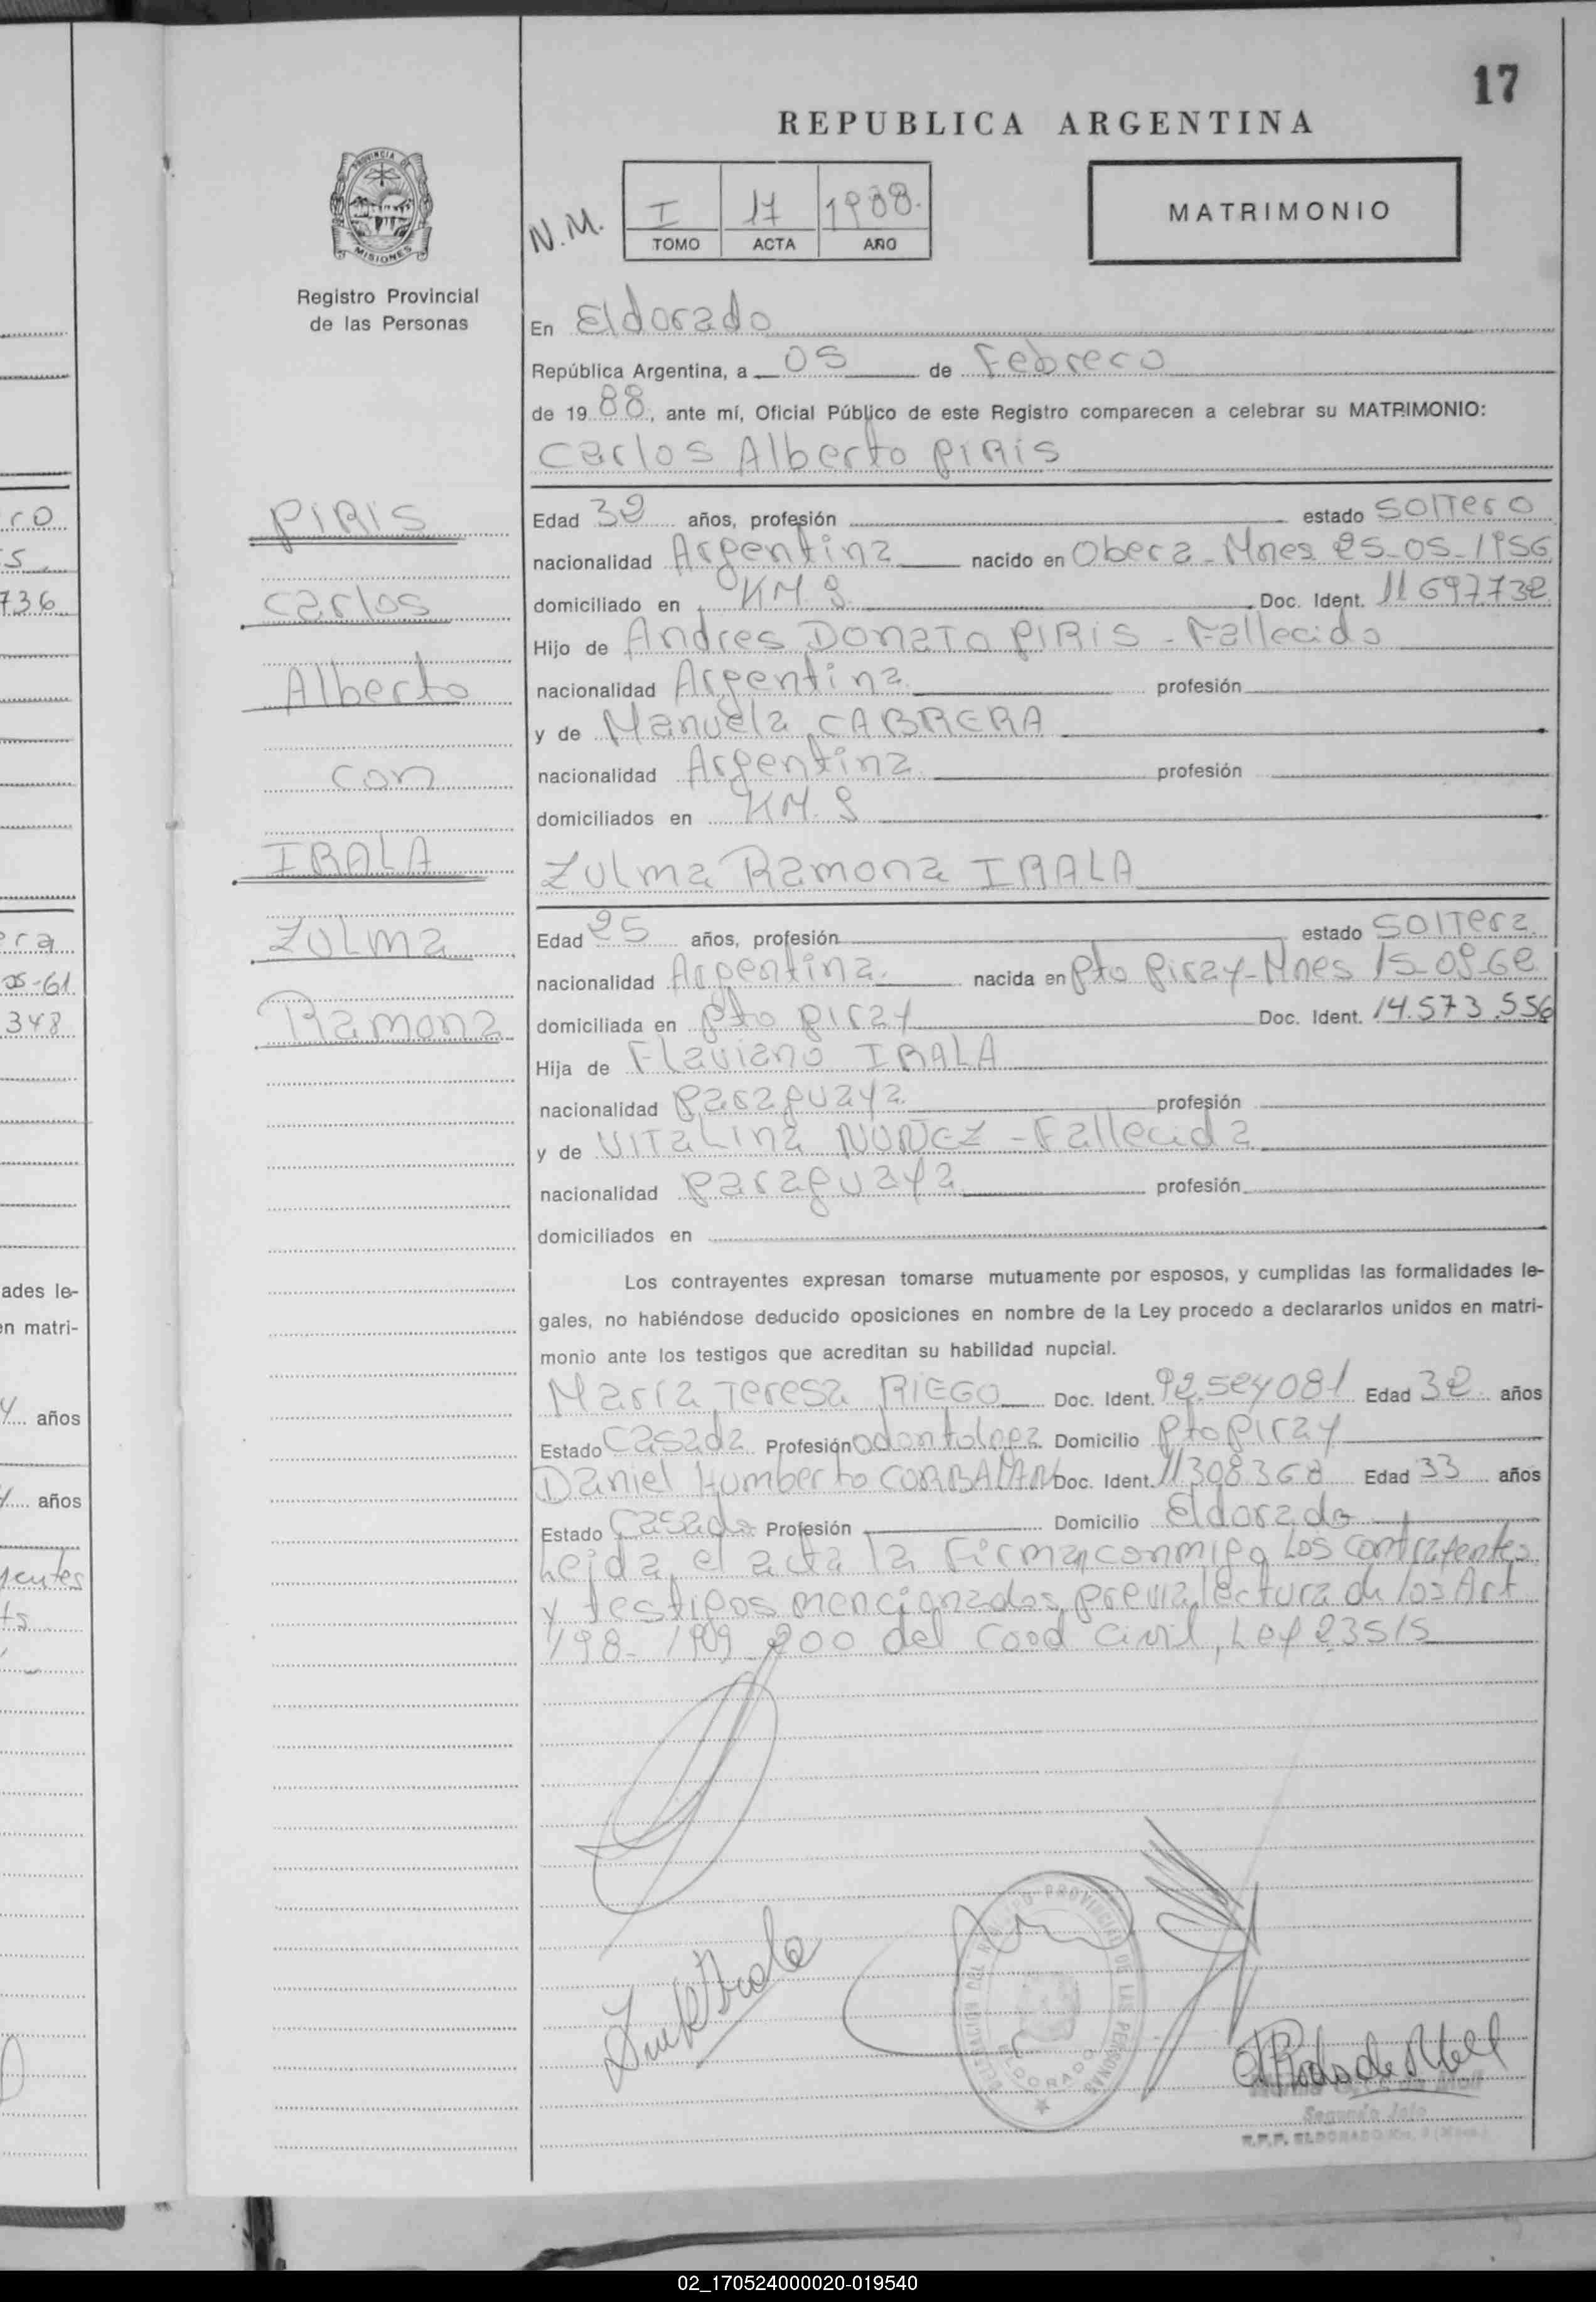 17
REPUBLICA ARGENTINA
PROVINCIA DE
MISIONES
Registro Provincial
de las Personas
N.M.
I 17 1988.
TOMO ACTA AÑO
MATRIMONIO
En Eldorado
República Argentina, a 05 de Febrero
de 1988, ante mí, Oficial Público de este Registro comparecen a celebrar su MATRIMONIO:
Carlos Alberto PIRIS
PIRIS
Carlos
Alberto
con
IRALA
Zulma
Ramona
Edad 32 años, profesión estado Soltero
nacionalidad Argentina nacido en Obera - Mnes 25-05-1956
domiciliado en KM. 9 Doc. Ident. 11697732
Hijo de Andres Donato PIRIS - Fallecido
nacionalidad Argentina profesión
y de Manuela CABRERA
nacionalidad Argentina profesión
domiciliados en KM. 9
Zulma Ramona IRALA
Edad 25 años, profesión estado Soltera
nacionalidad Argentina nacida en Pto Piray-Mnes 15-09-62
domiciliada en Pto Piray Doc. Ident. 14.573.556
Hija de Flaviano IRALA
nacionalidad Paraguaya profesión
y de Vitalina NUÑEZ - Fallecida
nacionalidad Paraguaya profesión
domiciliados en
Los contrayentes expresan tomarse mutuamente por esposos, y cumplidas las formalidades le-
gales, no habiéndose deducido oposiciones en nombre de la Ley procedo a declararlos unidos en matri-
monio ante los testigos que acreditan su habilidad nupcial.
María Teresa RIEGO Doc. Ident. 92.524081 Edad 32 años
Estado Casada Profesión odontologa Domicilio Pto Piray
Daniel Humberto CORBALAN Doc. Ident. 11308368 Edad 33 años
Estado Casado Profesión Domicilio Eldorado
Leida el acta la Firman conmigo Los contrayentes
y testigos mencionados, previa lectura de los Art
198- 199 200 del Cood Civil, Ley 23515
DELEGACION DEL REGISTRO PROVINCIAL DE LAS PERSONAS
ELDORADO
Segundo Jefe
R.P.P. ELDORADO
ro
5
736
era
05-61
348
ades le-
en matri-
años
años
yentes
ts
02_170524000020-019540